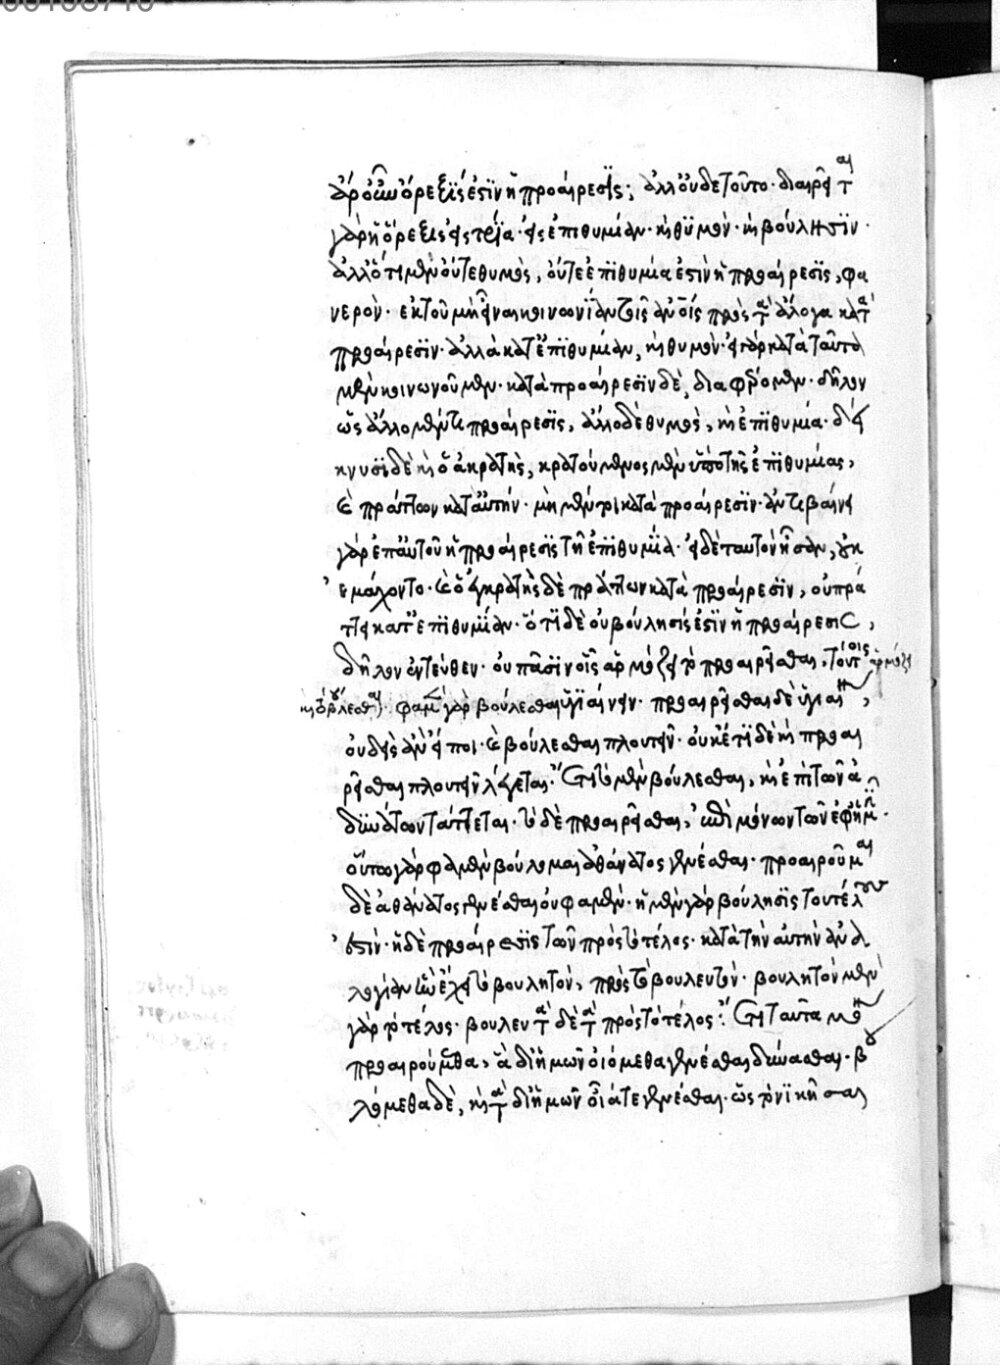 ἆρ' οὖν ὄρεξίς ἐστιν ἡ προαίρεσις; ἀλλ' οὐδὲ τοῦτο· διαιρεῖται
γὰρ ἡ ὄρεξις εἰς τρία· εἰς ἐπιθυμίαν· καὶ θυμὸν· καὶ βούλησιν·
ἀλλ' ὅτι μὲν οὔτε θυμὸς, οὔτε ἐπιθυμία ἐστὶν ἡ προαίρεσις, φα
νερὸν· ἐκ τοῦ μὴ εἶναι κοινωνίαν τοῖς ἀνοις πρὸς τὰ ἄλογα κατὰ
προαίρεσιν· ἀλλὰ κατ' ἐπιθυμίαν, καὶ θυμὸν· εἰ γὰρ κατὰ ταῦτα
μὲν κοινωνοῦμεν· κατὰ προαίρεσιν δὲ, διαφέρομεν· δῆλον
ὡς ἄλλο μέν τι προαίρεσις, ἄλλο δὲ θυμὸς, καὶ ἐπιθυμία· δεί
κνυσι δὲ καὶ ὁ ἀκρατὴς, κρατούμενος μὲν ὑπὸ τῆς ἐπιθυμίας,
καὶ πράττων κατ' αὐτήν· μὴ μέντοι κατὰ προαίρεσιν· ἀντεβαίνει
γὰρ ἐπ' αὐτοῦ ἡ προαίρεσις τῇ ἐπιθυμίᾳ· εἰ δὲ ταυτὸν ἦσαν, οὐκ
ἐμάχοντο· καὶ ὁ ἐγκρατὴς δὲ πράττων κατὰ προαίρεσιν, οὐ πρά
ττει κατ' ἐπιθυμίαν· ὅτι δὲ οὐ βούλησίς ἐστιν ἡ προαίρεσις,
δῆλον ἐντεῦθεν· οὐ πᾶσιν οἷς ἁρμόζει τὸ προαιρεῖσθαι, τούτοις ἁρμόζει
καὶ τὸ βούλεσθαι· φαμὲν γὰρ βούλεσθαι ὑγιαίνειν· προαιρεῖσθαι δὲ ὑγιαίνειν,
οὐδεὶς ἂν εἴποι· καὶ βούλεσθαι πλουτεῖν· οὐκέτι δὲ καὶ προαι
ρεῖσθαι πλουτεῖν λέγεται· ἔτι τὸ μὲν βούλεσθαι, καὶ ἐπὶ τῶν ἀ
δυνάτων τάττεται· τὸ δὲ προαιρεῖσθαι, ἐπὶ μόνων τῶν ἐφ' ἡμῖν·
οὕτω γὰρ φαμὲν βούλομαι ἀθάνατος γενέσθαι· προαιροῦμαι
δὲ ἀθάνατος γενέσθαι οὐ φαμὲν· ἡ μὲν γὰρ βούλησις τοῦ τέλους
ἐστὶν· ἡ δὲ προαίρεσις τῶν πρὸς τὸ τέλος· κατὰ τὴν αὐτὴν ἀνα
λογίαν ἣν ἔχει τὸ βουλητὸν, πρὸς τὸ βουλευτὸν· βουλητὸν μὲν
γὰρ τὸ τέλος· βουλευτὰ δὲ τὰ πρὸς τὸ τέλος· ἔτι ταῦτα μόνον
προαιρούμεθα, ἃ δι' ἡμῶν οἰόμεθα γενέσθαι δύνασθαι· βου
λόμεθα δὲ, καὶ τὰ δι' ἡμῶν οἷά τε γενέσθαι· ὡς τὸ νικῆσαι